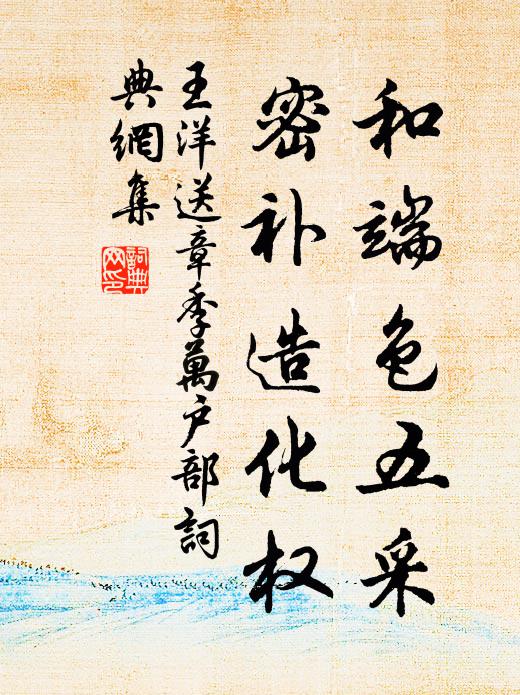 和端色五采
密补造化权
王洋送章季萬户部詞
典網集
詞典
网印